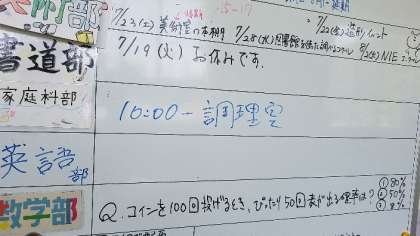 美術部
7/23(土) 美術室の本棚
7/22(金)造形
書道部
7/19(火) お休みです.
家庭科部
10:00 - 調理室
英語部
数学部
Q. コインを100回投げるとき、ぴったり50回表が出る確率は?
① 80%
② 50%
③ 8%